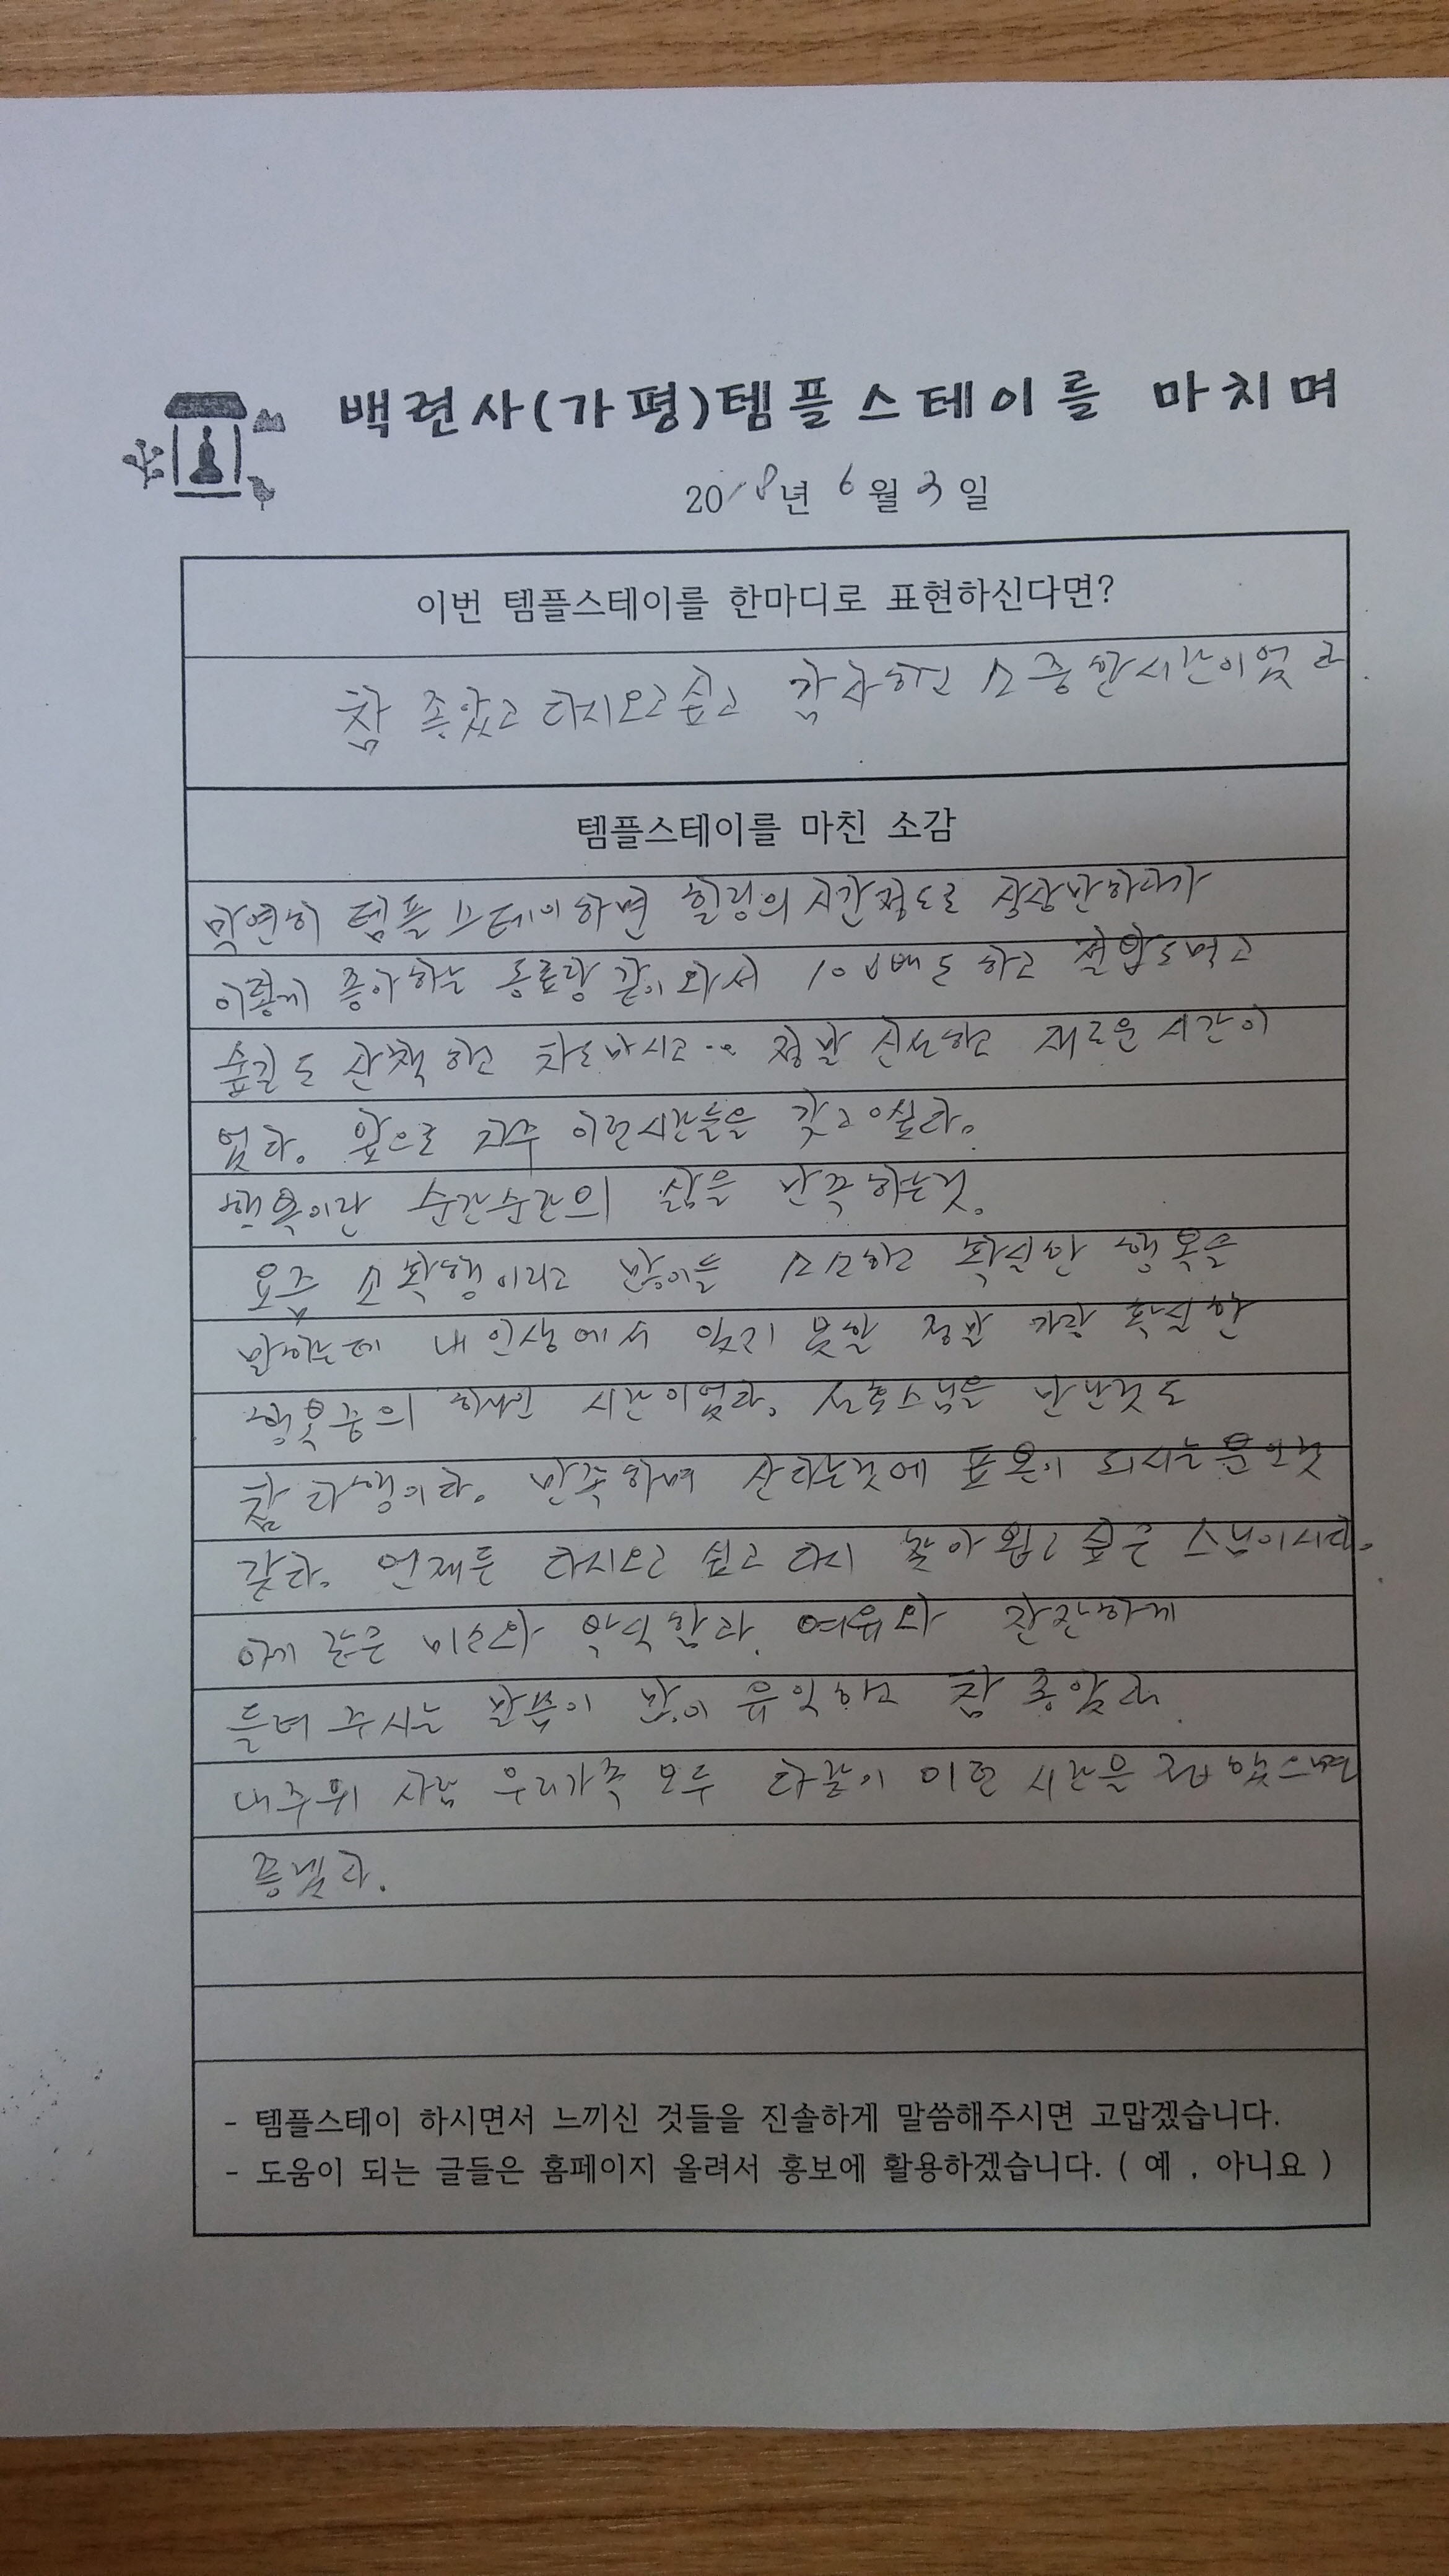 백련사(가평)템플스테이를 마치며
2018년 6월 3일
이번 템플스테이를 한마디로 표현하신다면?
참 좋았고 다시오고싶고 감사하고 소중한시간이었다.
템플스테이를 마친 소감
막연히 템플스테이하면 힐링의 시간정도로 상상만하다가
이렇게 좋아하는 동료랑 같이 와서 108배도 하고 절밥도먹고
숲길도 산책하고 차도마시고… 정말 신선하고 새로운 시간이
었다. 앞으로 자주 이런시간들을 갖고싶다.
행복이란 순간순간의 삶을 만족하는것.
요즘 소확행이라고 많이들 소소하고 확실한 행복을
말하는데 내 인생에서 잊지 못할 정말 가장 확실한
행복중의 하나인 시간이었다. 스님을 만난것도
참 다행이다. 만족하며 산다는것에 표본이 되시는분인것
같다. 언제든 다시오고 싶고 다시 찾아뵙고 싶은 스님이시다.
같은 미소와 여유와 잔잔하게
들려주시는 말씀이 많이 유익하고 참 좋았다.
내주위 사람 우리가족 모두 다같이 이런 시간을 있으면
좋겠다.
- 템플스테이 하시면서 느끼신 것들을 진솔하게 말씀해주시면 고맙겠습니다.
- 도움이 되는 글들은 홈페이지 올려서 홍보에 활용하겠습니다. ( 예 , 아니요 )